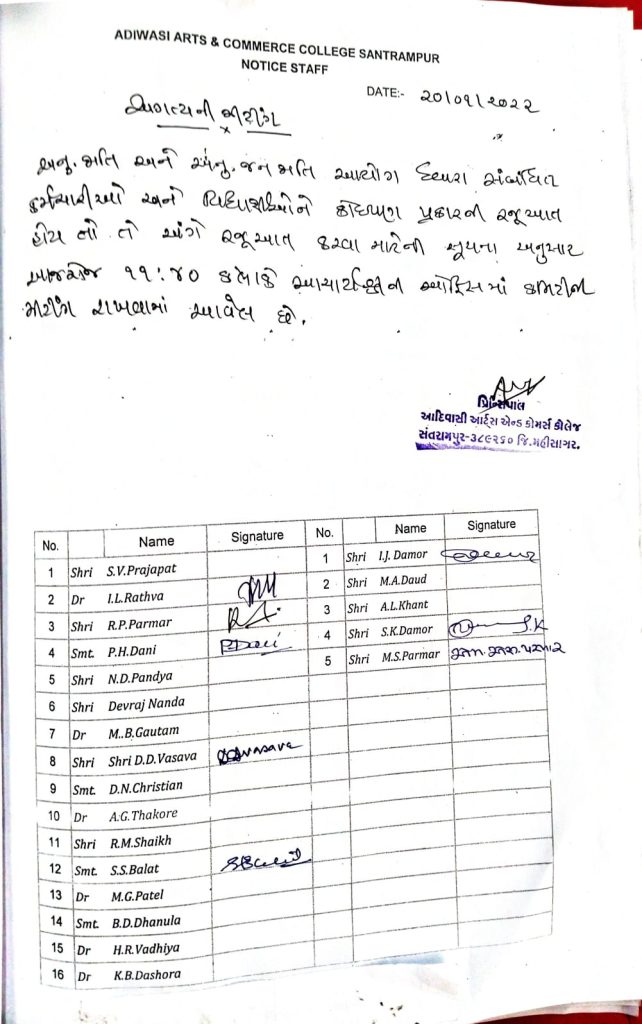 ADIWASI ARTS & COMMERCE COLLEGE SANTRAMPUR
NOTICE STAFF
DATE:- 20/09/2022
અગત્યની મીટીંગ
અનુ. જાતિ અને અનુ. જન જાતિ આયોગ દ્વારા સંબંધિત
કર્મચારીઓ અને વિદ્યાર્થીઓને કોઇપણ પ્રકારની રજૂઆત
હોય તો તે અંગે રજૂઆત કરવા માટેની સૂચના અનુસાર
આજરોજ ૧૧:૪૦ કલાકે આચાર્યશ્રીની ઓફિસમાં કમિટીની
મીટીંગ રાખવામાં આવેલ છે.
પ્રિન્સિપાલ
આદિવાસી આર્ટ્સ એન્ડ કોમર્સ કોલેજ
સંતરામપુર-૩૮૯૨૬૦ જિ.મહીસાગર.
No. Name Signature No. Name Signature
1 Shri S.V.Prajapat 1 Shri I.J. Damor
2 Dr I.L.Rathva 2 Shri M.A.Daud
3 Shri R.P.Parmar 3 Shri A.L.Khant
4 Smt. P.H.Dani PDani 4 Shri S.K.Damor S.K
5 Shri N.D.Pandya 5 Shri M.S.Parmar એમ.એસ.પરમાર
6 Shri Devraj Nanda
7 Dr M..B.Gautam
8 Shri Shri D.D.Vasava DDVasava
9 Smt. D.N.Christian
10 Dr A.G.Thakore
11 Shri R.M.Shaikh
12 Smt. S.S.Balat
13 Dr M.G.Patel
14 Smt. B.D.Dhanula
15 Dr H.R.Vadhiya
16 Dr K.B.Dashora